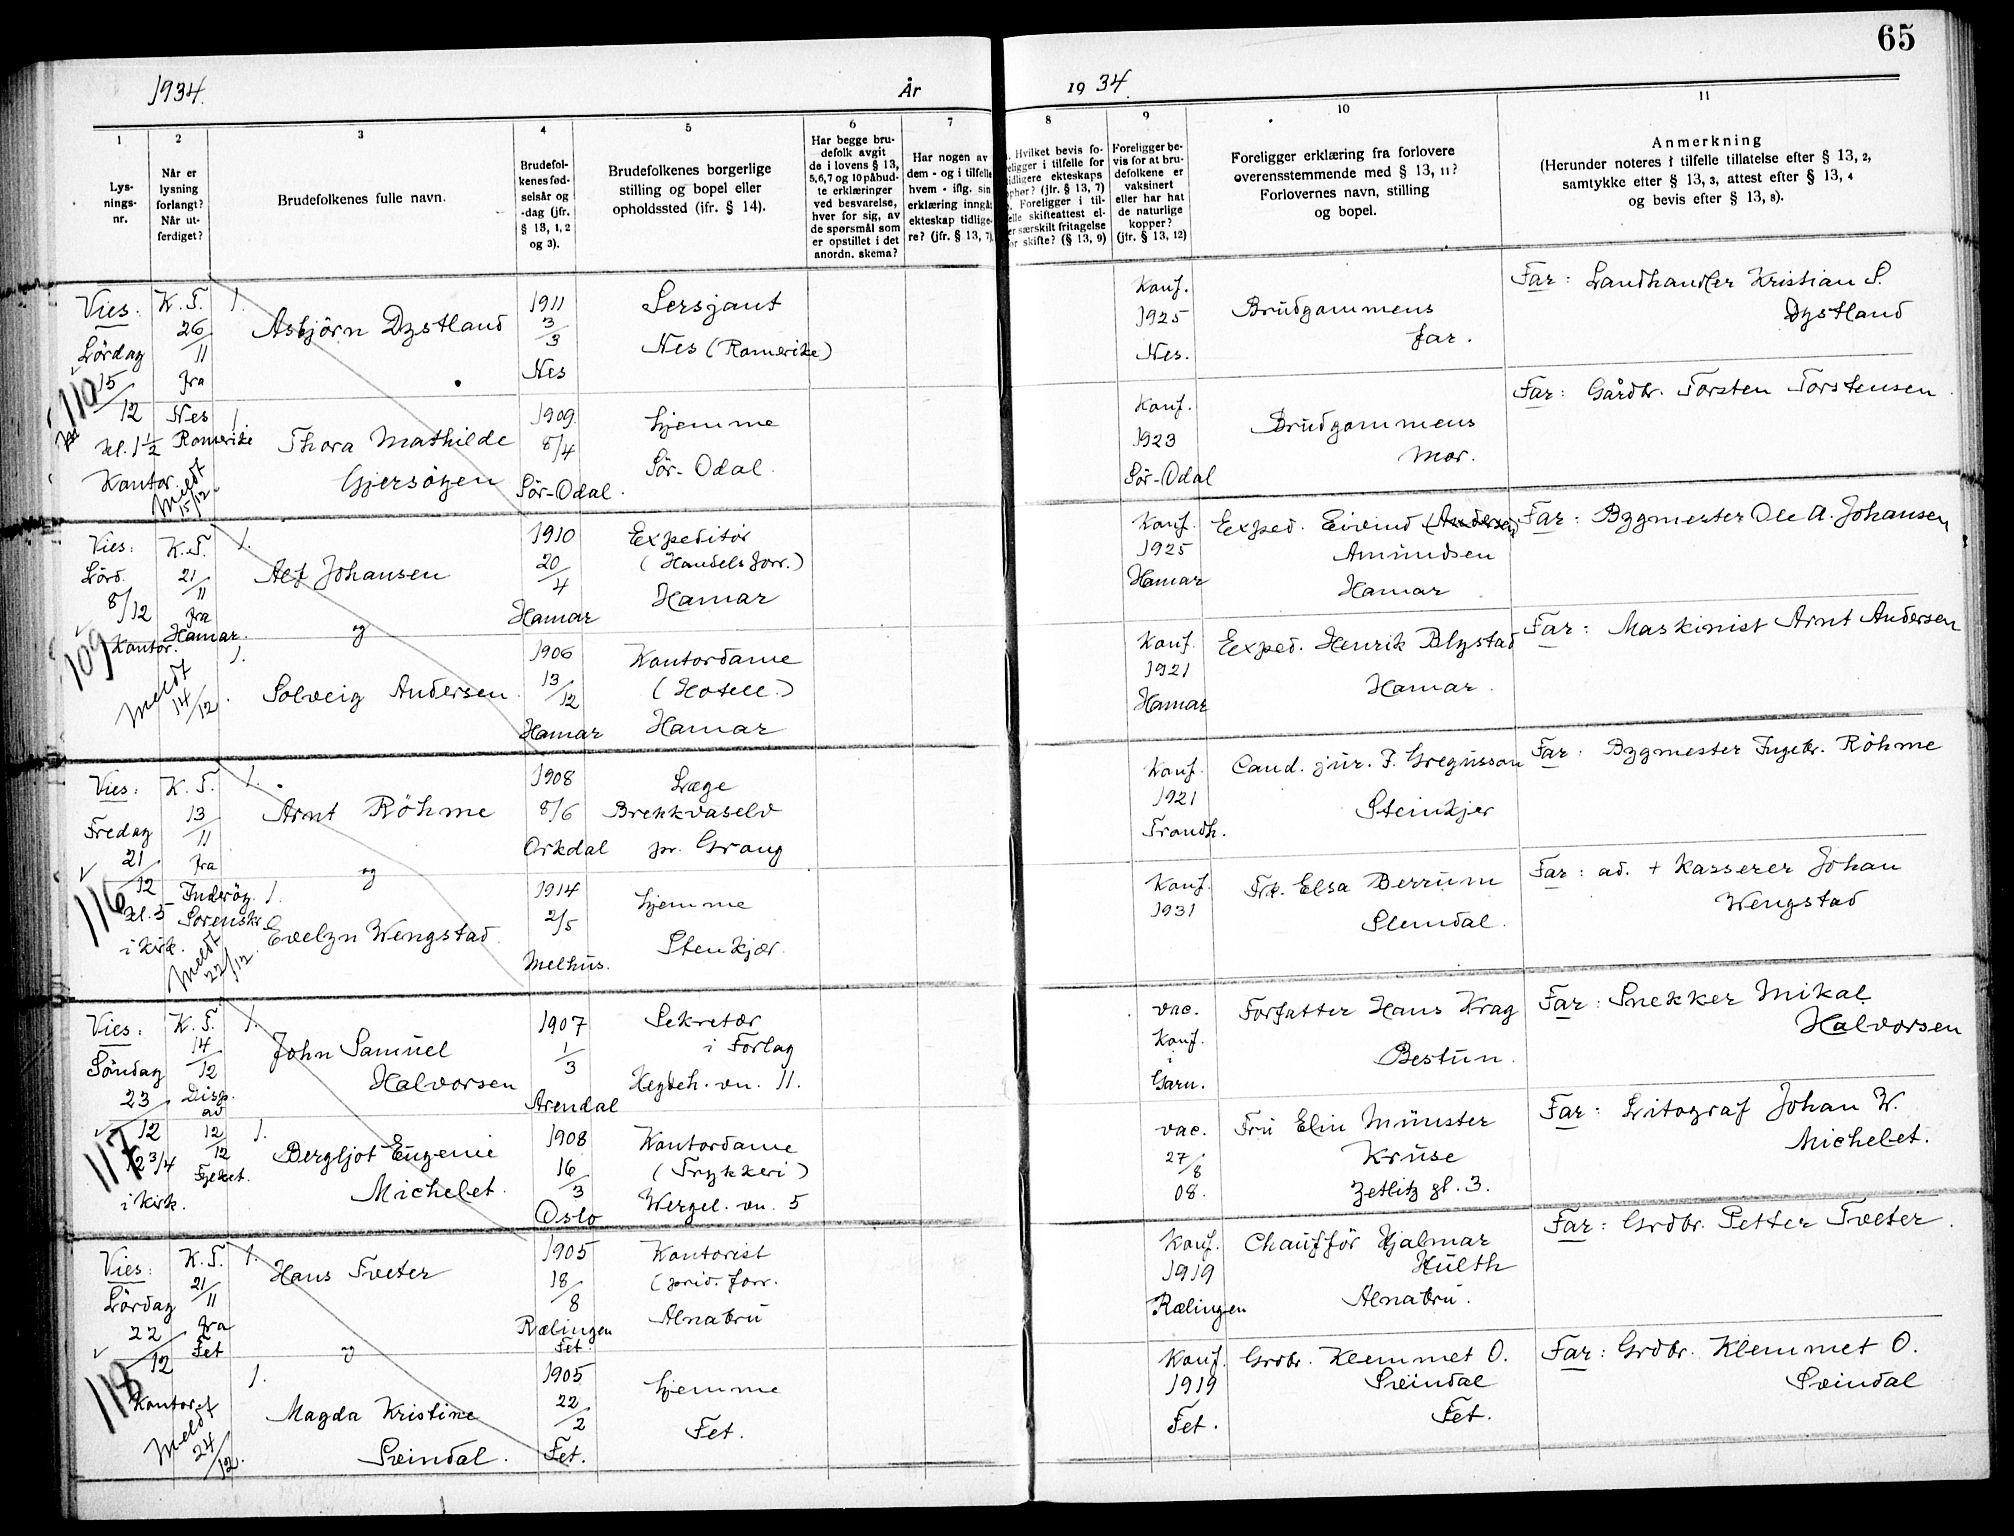 65
1934.
År
19 34.
1
Lys-
nings-
nr.
2
Når er
lysning
forlangt?
Når ut-
ferdiget?
3
Brudefolkenes fulle navn.
4
Brudefol-
kenes fød-
selsår og
-dag (jfr.
§ 13, 1, 2
og 3).
5
Brudefolkenes borgerlige
stilling og bopel eller
opholdssted (ifr. § 14).
6
Har begge bru-
defolk avgit
de i lovens § 13,
5,6,7 og 10 påbud-
te erklæringer
ved besvarelse,
hver for sig, av
de spørsmål som
er opstillet i det
anordn. skema?
7
Har nogen av
dem - og i tilfelle
hvem - iflg. sin
erklæring inngåt
ekteskap tidlige-
re? (jfr. § 13, 7)
8
Hvilket bevis fo-
religger i tilfelle for
tidligere ekteskaps
ophør? (jfr. § 13, 7)
Foreligger i til-
felle skifteattest el-
ler særskilt fritagelse
for skifte? (§ 13, 9)
9
Foreligger be-
vis for at bru-
defolkene er
vaksinert
eller har hat
de naturlige
kopper?
(jfr. § 13, 12)
10
Foreligger erklæring fra forlovere
overensstemmende med § 13, 11?
Forlovernes navn, stilling
og bopel.
11
Anmerkning
(Herunder noteres i tilfelle tillatelse efter § 13, 2,
samtykke efter § 13, 3, attest efter § 13, 4
og bevis efter § 13, 8).
Vies:
Lördag
15/12
Kl. 1 1/2
Kontor.
110
K. T.
26/11
fra
Nes
Romerike
Meldt
15/12.
1.
Asbjörn Dystland
1911
3/3
Nes
Sersjant
Nes (Romerike)
Konf.
1925
Nes.
Brudgommens
far.
Far: Landhandler Kristian S.
Dystland
1.
Thora Mathilde
Gjersöyen
1909.
8/4
Sör-Odal.
hjemme
Sör-Odal.
Konf.
1923
Sör-Odal
Brudgommens
Mor.
Far: Gårdbr. Torsten Torstensen.
Vies:
Lörd.
8/12
Kontor.
109
K. T.
21/11
fra
Hamar.
Meldt
14/12.
1.
Alf Johansen
og
1910
20/4
Hamar
Expeditör
(Handelsforr.)
Hamar
Konf.
1925
Hamar
Exped. Eivind (Andersen)
Amundsen
Hamar
Far: Bygmester Ole A. Johansen
1.
Solveig Andersen.
1906
13/12
Hamar
Kontordame
(Hotell.)
Hamar
Konf.
1921
Hamar
Exped. Henrik Blystad
Hamar.
Far: Maskinist Arnt Andersen
Vies:
Fredag
21/12
Kl. 5
i Kirk.
116
K. T.
13/11
fra
Inderöy.
Sorenskr.
Meldt
22/12.
1.
Arnt Röhme
og
1908
8/6
Orkdal
Læge
Brekkvaselv
pr. Grong
Konf.
1921
Trondh.
Cand. jur. F. Gregusson
Steinkjer
Far: Bygmester Ingebr. Röhme
1.
Evelyn Wengstad
1914
2/5
Melhus.
hjemme
Stenkjær.
Konf.
1931
Frk. Elsa Berrum
Slemdal.
Far: ad. + Kasserer Johan
Wengstad
Vies:
Söndag
23/12
12 3/4
i Kirk.
117
K. T.
14/12
Disp.
av
12/12
Fylket.
1.
John Samuel
Halvorsen
1907
1/3
Arendal
Sekretær
i Forlag
Hegdeh. vn. 11.
vac.
Konf.
i
Garn.
Forfatter Hans Krag
Bestun.
Far: Snekker Mikal
Halvorsen
1.
Bergljot Eugenie
Michelet.
1908
16/3
Oslo
Kontordame
(Trykkeri)
Wergel. vn. 5
vac.
27/8
08.
Fru Elin Münster
Kruse
Zetlitz gt. 3.
Far: Litograf Johan W.
Michelet.
Vies:
Lördag
22/12
Kontor.
118
K. T.
21/11
fra
Fet
Meldt
24/12.
1.
Hans Tveter
og
1905
18/8
Rælingen
Fet
Kontorist
(priv. forr.
Alnabru
Konf.
1919
Rælingen
Chaufför Hjalmar
Hulth
Alnabru.
Far: Grdbr. Petter Tveter.
1.
Magda Kristine
Svindal.
1905
22/2
Fet.
hjemme
Fet.
Konf.
1919
Fet.
Grdbr. Klemmet O.
Svindal
Fet.
Far: Grdbr. Klemmet O.
Svindal